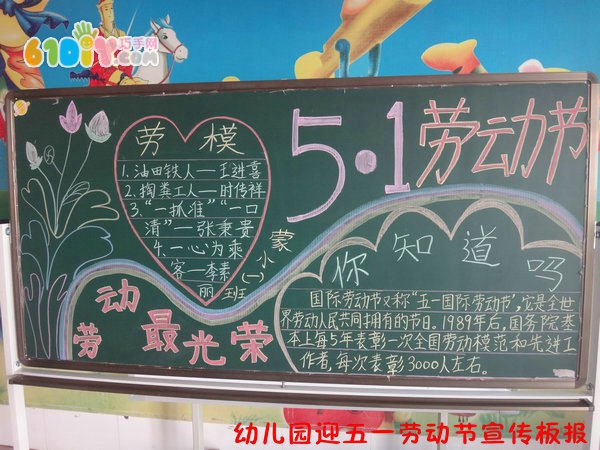 61DIY巧手网
5·1劳动节
劳模
1.油田铁人—王进喜
2.掏粪工人—时传祥
3."一抓准""一口
清"—张秉贵
4.一心为乘
客—李素
丽
蒙小(一)班
劳动最光荣
你知道吗
国际劳动节又称"五一国际劳动节",它是全世
界劳动人民共同拥有的节日。1989年后,国务院基
本上每5年表彰一次全国劳动模范和先进工
作者,每次表彰3000人左右。
幼儿园迎五一劳动节宣传板报